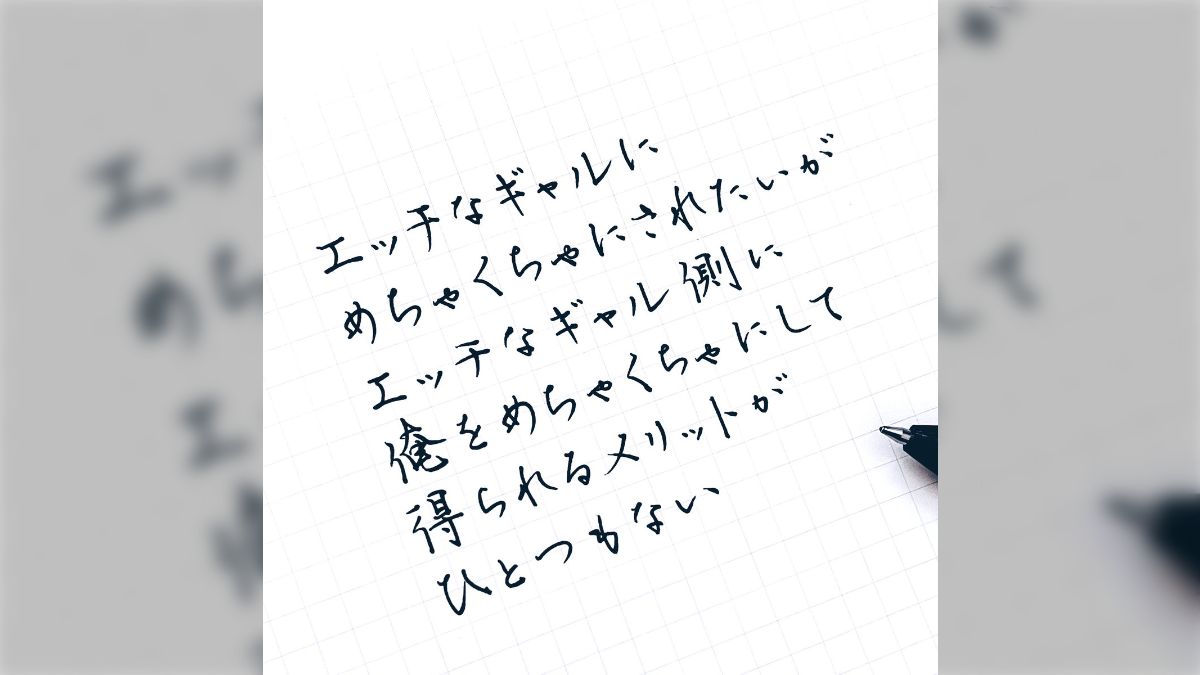 エッチなギャルに
めちゃくちゃにされたいが
エッチなギャル側に
俺をめちゃくちゃにして
得られるメリットが
ひとつもない